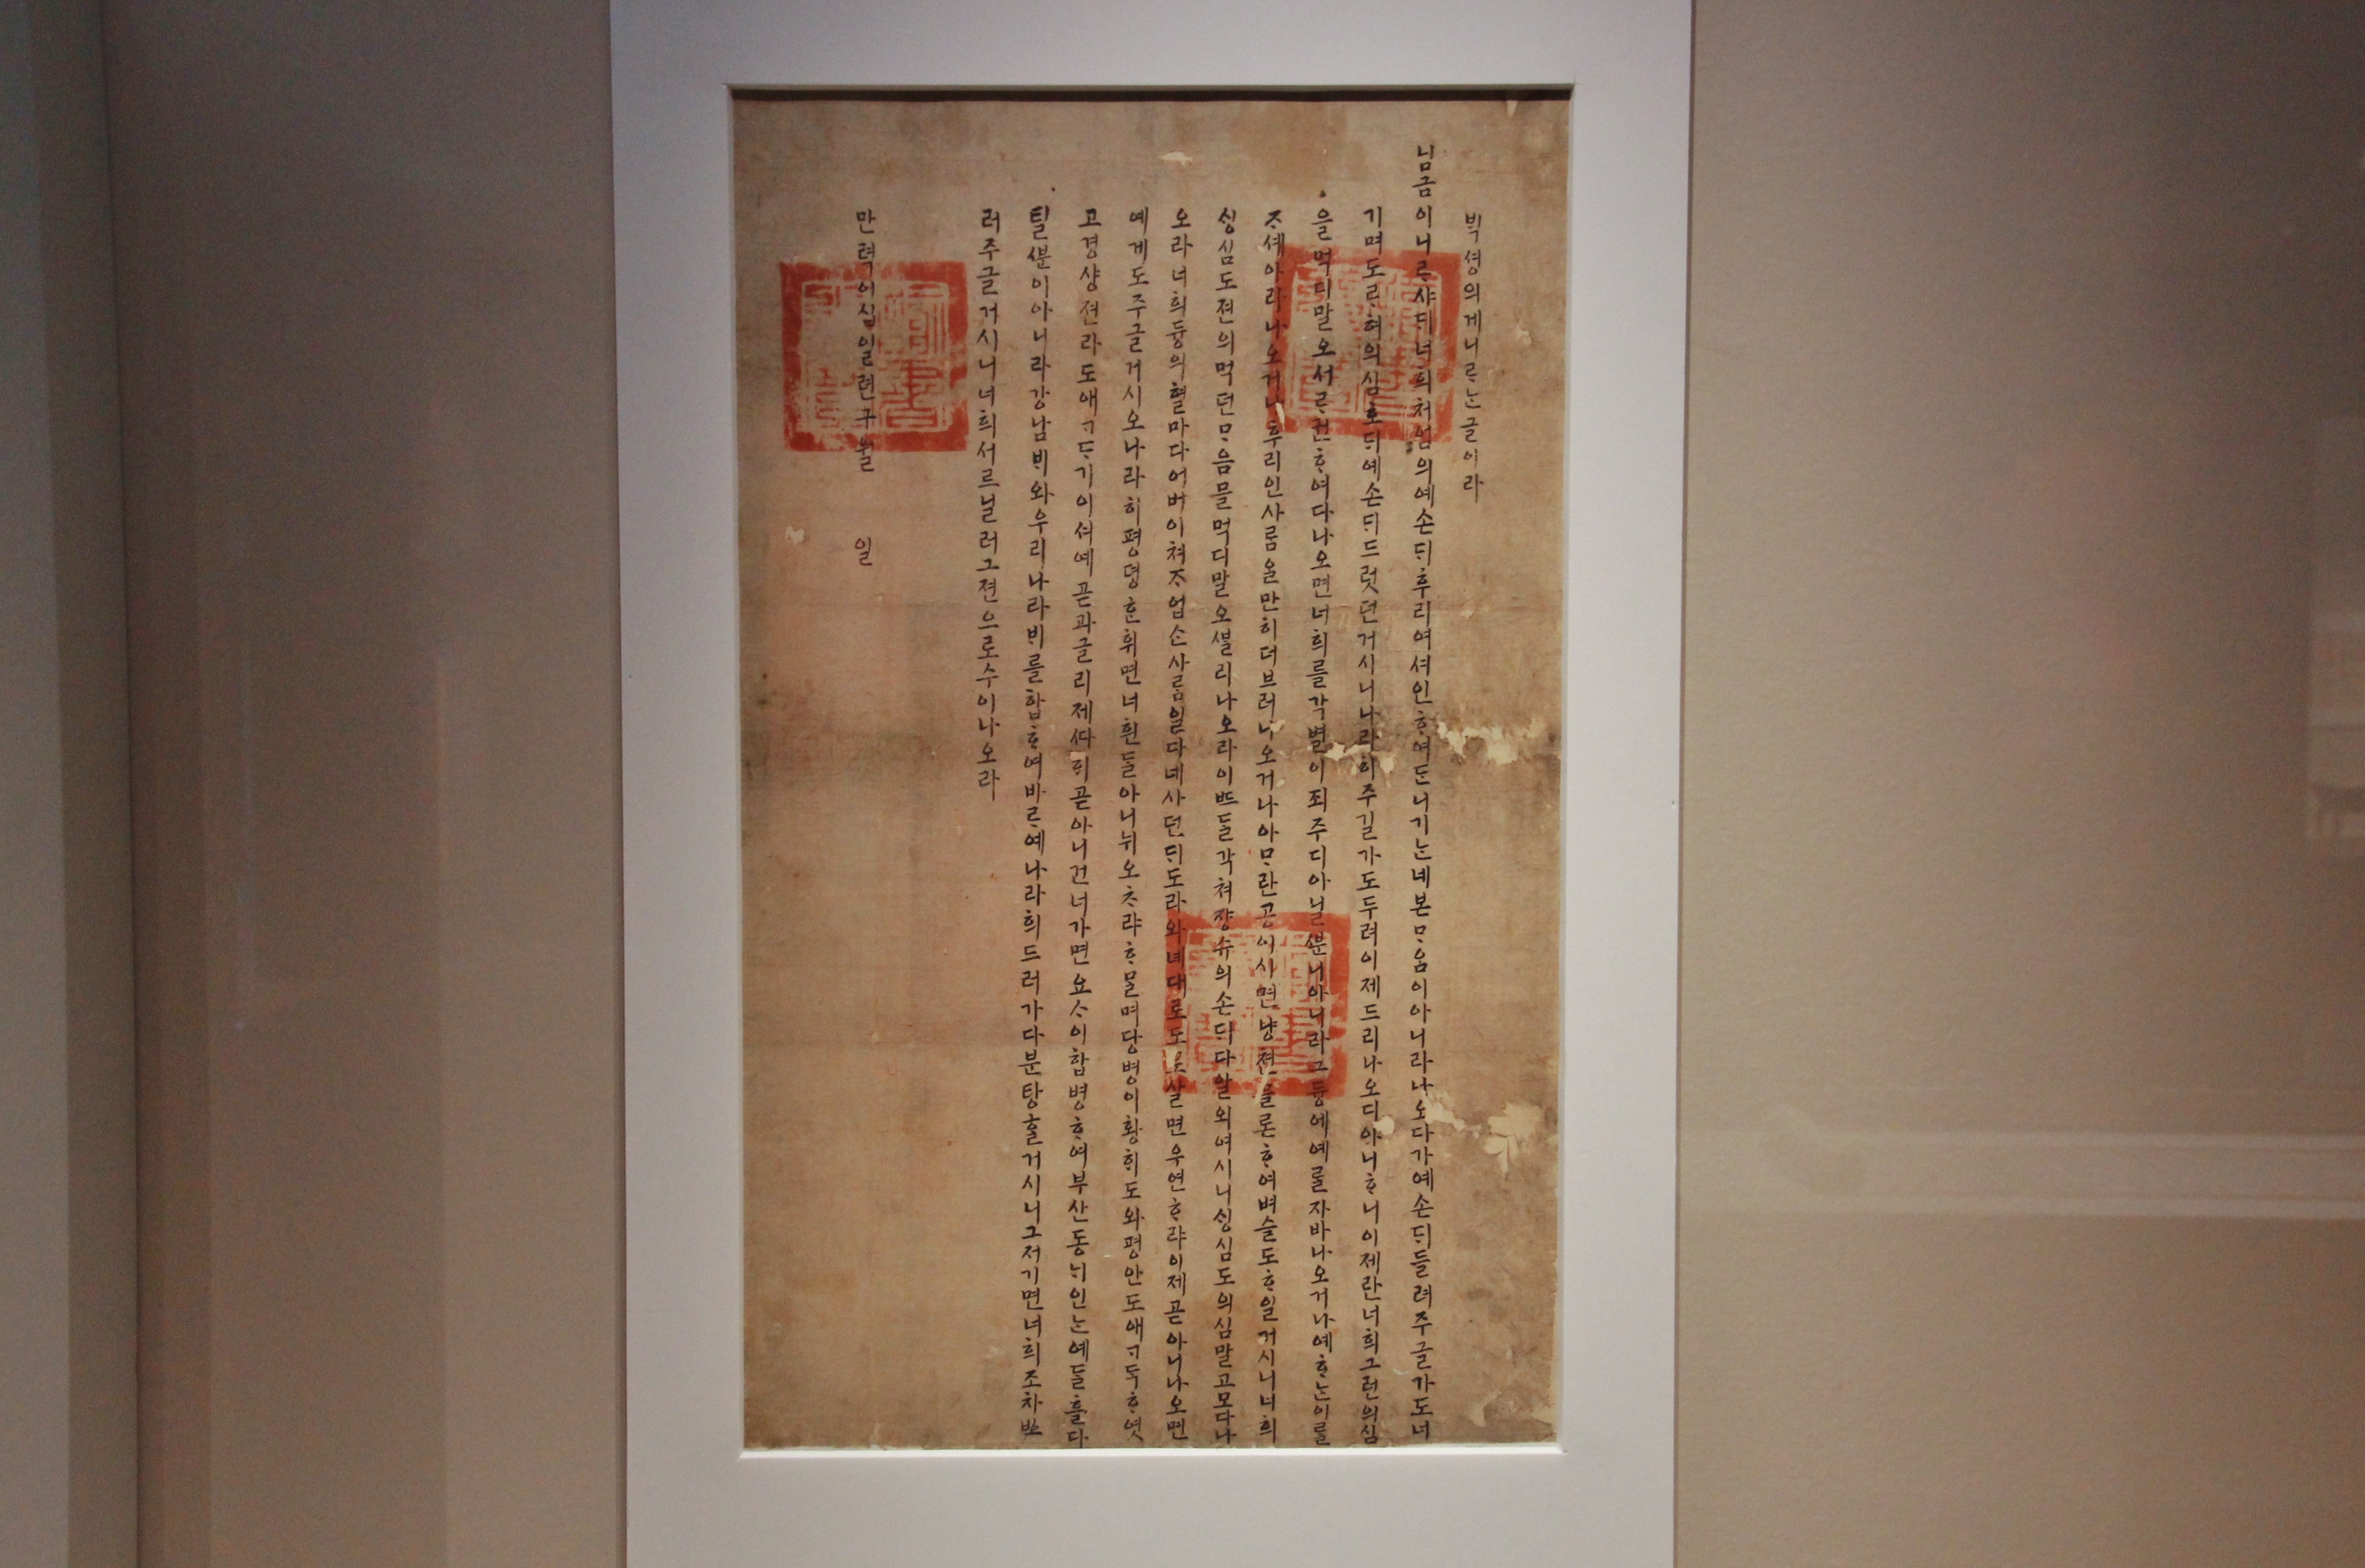 ᄇᆡᆨ셩의게니ᄅᆞᄂᆞᆫ글이라
님금이니ᄅᆞ샤ᄃᆡ너희처엄의예손ᄃᆡ후리여셔인ᄒᆞ여ᄃᆞᆫ니기ᄂᆞᆫ네본ᄆᆞᄋᆞᆷ이아니라나오다가예손ᄃᆡ들려주글가도너
기며도ᄅᆞ혀의심호ᄃᆡ예손ᄃᆡ드럿던거시니나라히주길가도두려이제드리나오디아니ᄒᆞ니이제란너희그런의심
을먹디말오서ᄅᆞ권ᄒᆞ여다나오면너희를각별이죄주디아닐ᄲᅮᆫ니아니라그듕에예ᄅᆞᆯ자바나오거나예ᄒᆞᄂᆞᆫ이ᄅᆞᆯ
ᄌᆞ셰아라나오거나후리인사ᄅᆞᆷ을만히더브러나오거나아ᄆᆞ란공이시면냥쳔을론ᄒᆞ여벼슬도ᄒᆞ일거시니너희
ᄉᆡᆼ심도젼의먹던ᄆᆞ음믈먹디말오ᄲᆞᆯ리나오라이ᄠᅳ들각쳐쟝슈의손ᄃᆡ다알외여시니ᄉᆡᆼ심도의심말고모다나
오라너희듕의혈마다어버이쳐ᄌᆞ업ᄉᆞᆫ사ᄅᆞᆷ일다네사던ᄃᆡ도라와녜대로도로살면우연ᄒᆞ랴이제곧아니나오면
예게도주글거시오나라히평뎡ᄒᆞᆫ휘면너흰ᄃᆞᆯ아니뉘오ᄎᆞ랴ᄒᆞᄆᆞᆯ며당병이황ᄒᆡ도와평안도애ᄀᆞᄃᆞᆨᄒᆞ엿
고경샹젼라도애ᄀᆞᄃᆞ기이셔예곧과글리제ᄯᅡᄒᆡ곧아니건너가면요ᄉᆞ이합병ᄒᆞ여부산동ᄂᆡ인ᄂᆞᆫ예ᄃᆞᆯ흘다
틸ᄲᅮᆫ이아니라강남ᄇᆡ와우리나라ᄇᆡ를합ᄒᆞ여바ᄅᆞ예나라희드러가다분탕ᄒᆞᆯ거시니그저기면너희조차ᄡᅳ
러주글거시니너희서르닐러그젼으로수이나오라
만력이십일련구월 일